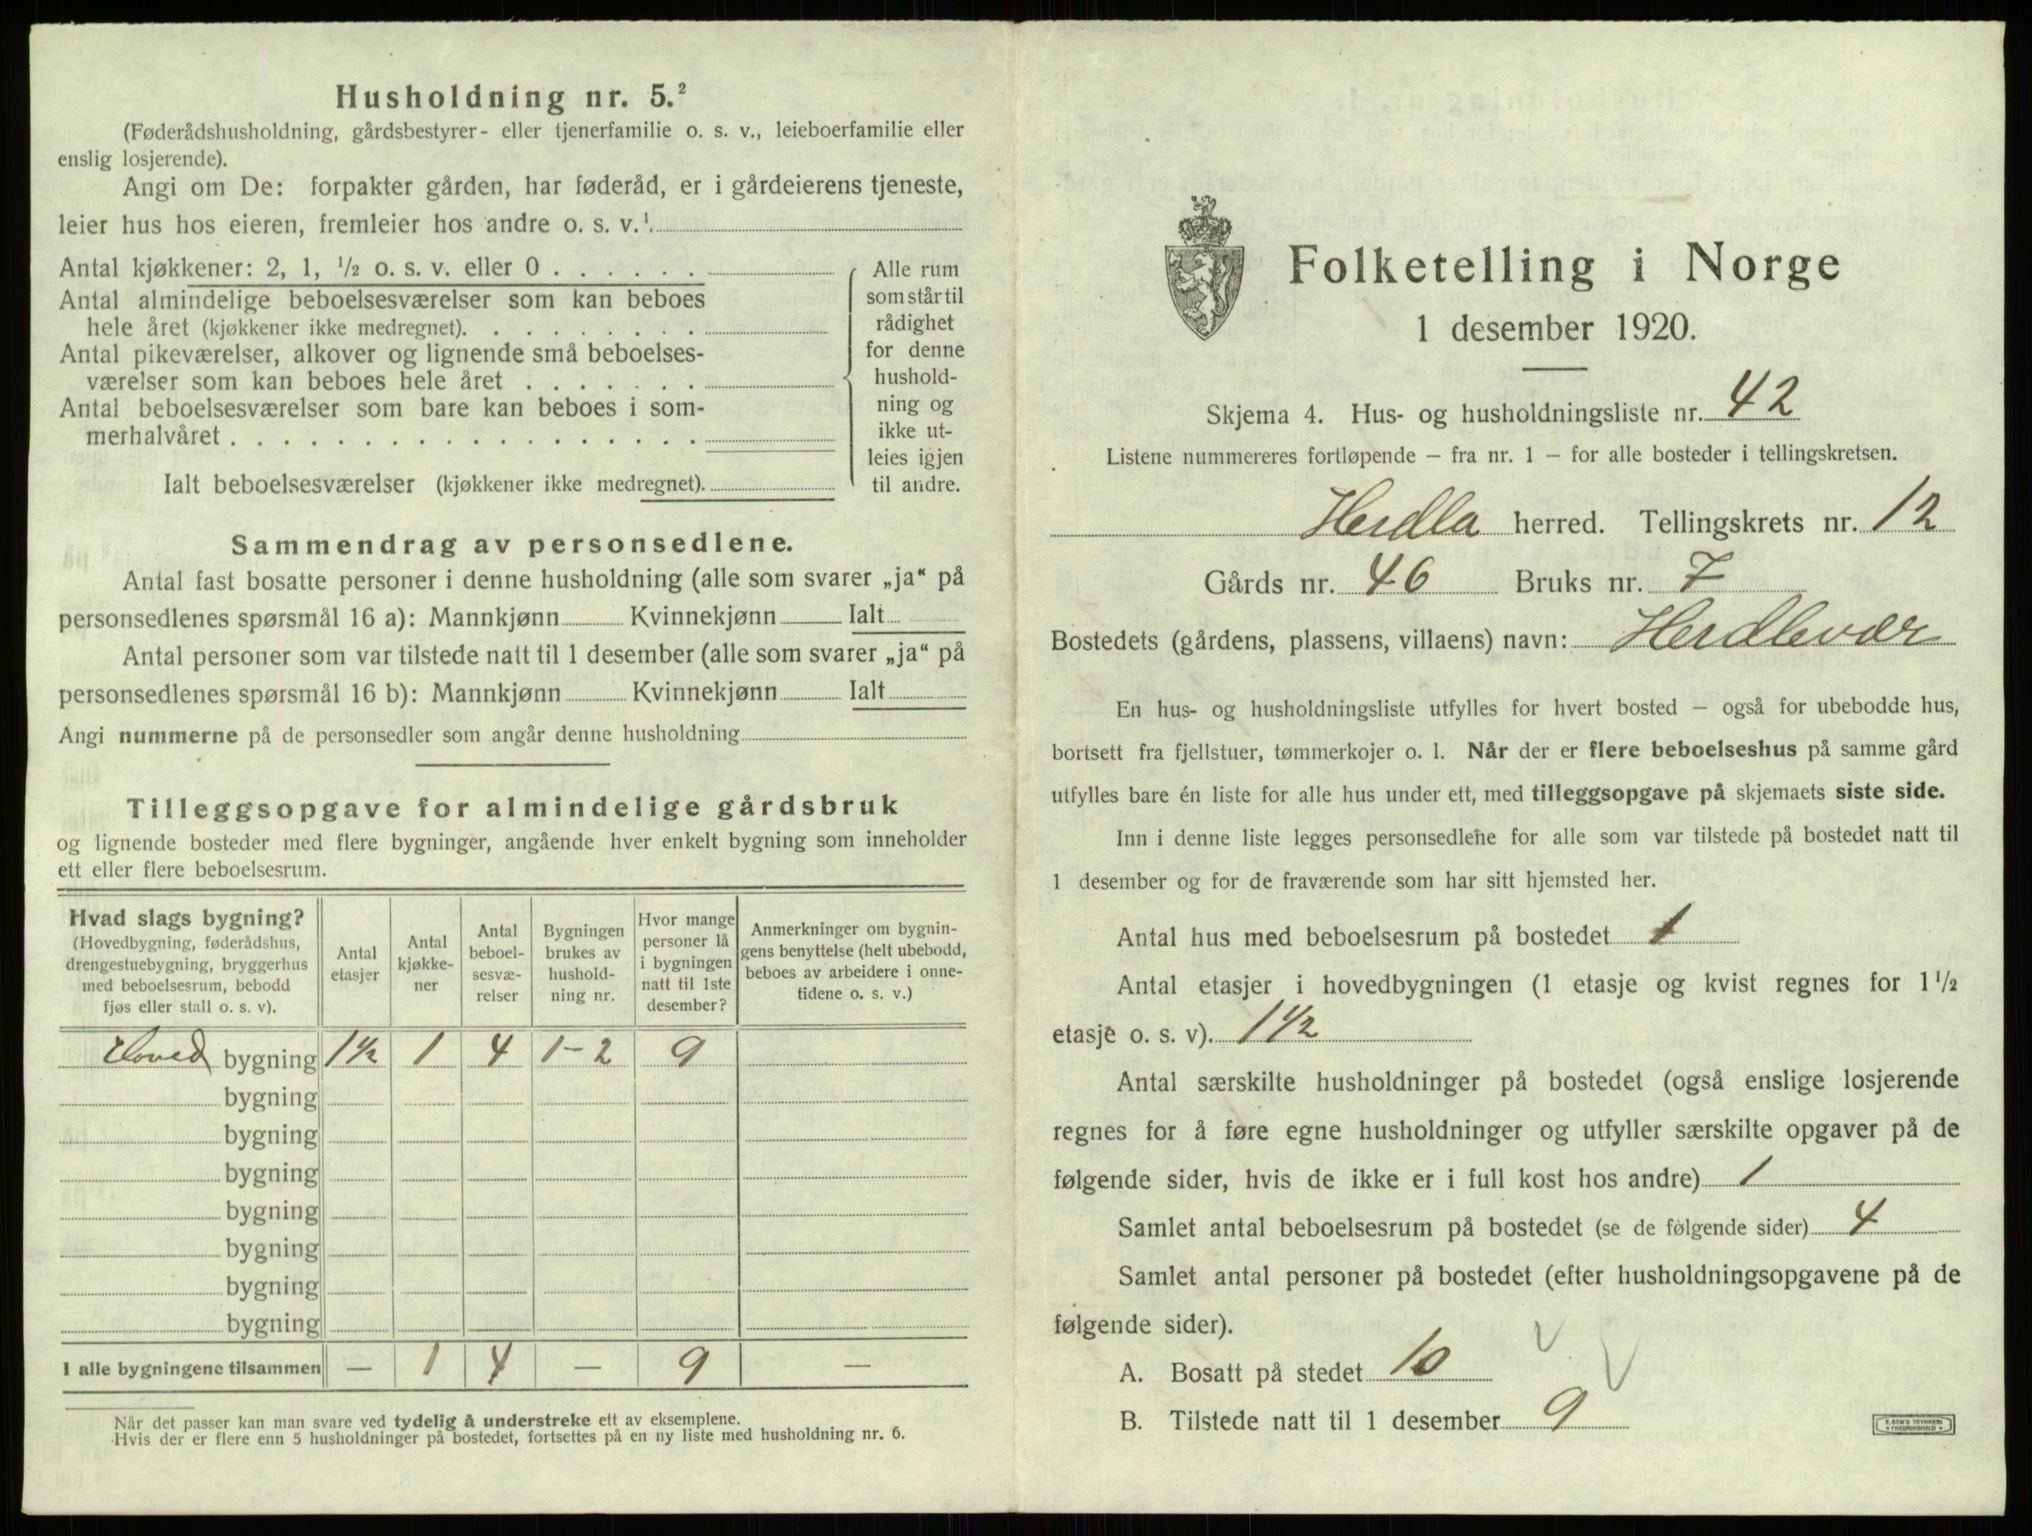 Husholdning nr. 5.²
(Føderådshusholdning, gårdsbestyrer- eller tjenerfamilie o. s. v., leieboerfamilie eller
enslig losjerende).
Angi om De: forpakter gården, har føderåd, er i gårdeierens tjeneste,
leier hus hos eieren, fremleier hos andre o. s. v.¹
Antal kjøkkener: 2, 1, ½ o. s. v. eller 0 . . . . . .
Antal almindelige beboelsesværelser som kan beboes
hele året (kjøkkener ikke medregnet). . . . . . . . .
Antal pikeværelser, alkover og lignende små beboelses-
værelser som kan beboes hele året . . . . . . .
Antal beboelsesværelser som bare kan beboes i som-
merhalvåret . . . . . . . . . . . . . . . . . .
Ialt beboelsesværelser (kjøkkener ikke medregnet).
Alle rum
som står til
rådighet
for denne
hushold-
ning og
ikke ut-
leies igjen
til andre.
Sammendrag av personsedlene.
Antal fast bosatte personer i denne husholdning (alle som svarer „ja“ på
personsedlenes spørsmål 16 a): Mannkjønn Kvinnekjønn Ialt
Antal personer som var tilstede natt til 1 desember (alle som svarer „ja“ på
personsedlenes spørsmål 16 b): Mannkjønn Kvinnekjønn Ialt
Angi nummerne på de personsedler som angår denne husholdning
Tilleggsopgave for almindelige gårdsbruk
og lignende bosteder med flere bygninger, angående hver enkelt bygning som inneholder
ett eller flere beboelsesrum.
Hvad slags bygning?
(Hovedbygning, føderådshus,
drengestuebygning, bryggerhus
med beboelsesrum, bebodd
fjøs eller stall o. s. v).
Antal
etasjer
Antal
kjøkke-
ner
Antal
beboel-
sesvæ-
relser
Bygningen
brukes av
hushold-
ning nr.
Hvor mange
personer lå
i bygningen
natt til 1ste
desember?
Anmerkninger om bygnin-
gens benyttelse (helt ubebodd,
beboes av arbeidere i onne-
tidene o. s. v.)
Hoved bygning 1½ 1 4 1-2 9
bygning
bygning
bygning
bygning
bygning
bygning
bygning
I alle bygningene tilsammen — 1 4 — 9 —
Når det passer kan man svare ved tydelig å understreke ett av eksemplene.
Hvis der er flere enn 5 husholdninger på bostedet, fortsettes på en ny liste med husholdning nr. 6.
Folketelling i Norge
1 desember 1920.
Skjema 4. Hus- og husholdningsliste nr. 42
Listene nummereres fortløpende – fra nr. 1 – for alle bosteder i tellingskretsen.
Herdla herred. Tellingskrets nr. 12
Gårds nr. 46 Bruks nr. 7
Bostedets (gårdens, plassens, villaens) navn: Herdlevær
En hus- og husholdningsliste utfylles for hvert bosted – også for ubebodde hus,
bortsett fra fjellstuer, tømmerkojer o. l. Når der er flere beboelseshus på samme gård
utfylles bare én liste for alle hus under ett, med tilleggsopgave på skjemaets siste side.
Inn i denne liste legges personsedlene for alle som var tilstede på bostedet natt til
1 desember og for de fraværende som har sitt hjemsted her.
Antal hus med beboelsesrum på bostedet 1
Antal etasjer i hovedbygningen (1 etasje og kvist regnes for 1½
etasje o. s. v). 1½
Antal særskilte husholdninger på bostedet (også enslige losjerende
regnes for å føre egne husholdninger og utfyller særskilte opgaver på de
følgende sider, hvis de ikke er i full kost hos andre) 1
Samlet antal beboelsesrum på bostedet (se de følgende sider) 4
Samlet antal personer på bostedet (efter husholdningsopgavene på de
følgende sider).
A. Bosatt på stedet 10
B. Tilstede natt til 1 desember 9